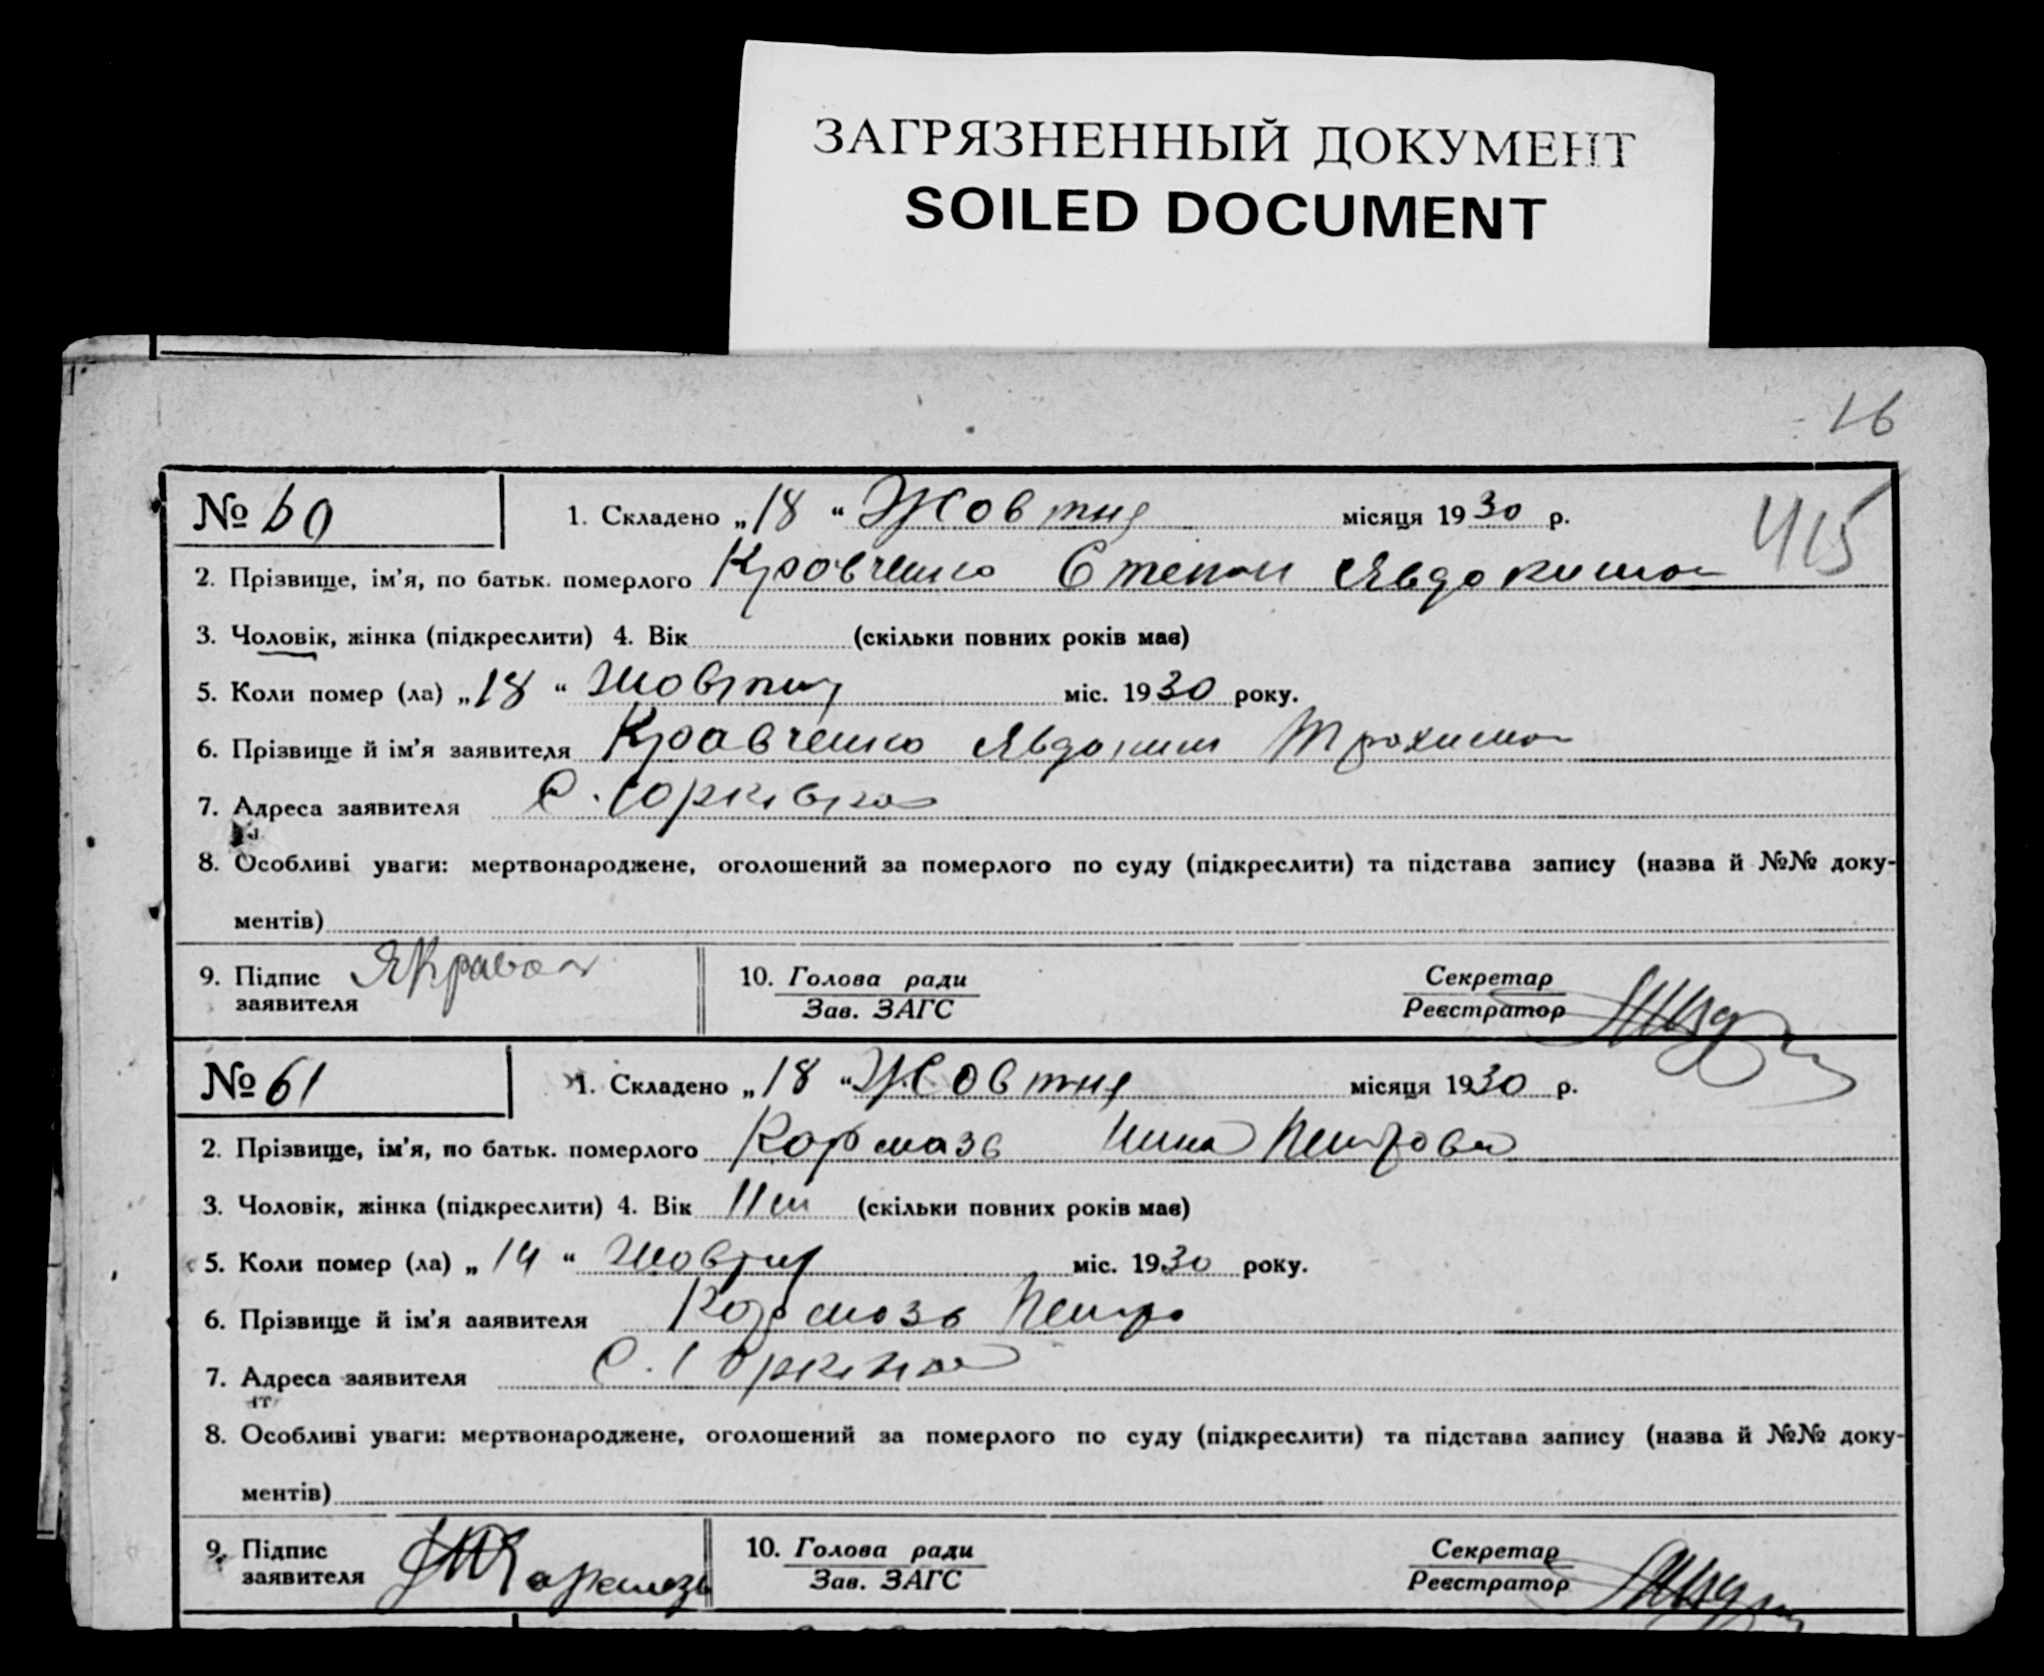 ЗАГРЯЗНЕННЫЙ ДОКУМЕНТ
SOILED DOCUMENT
16
№ 60
1. Складено „18 “ Жовтня місяця 1930 р.
415
2. Прізвище, ім’я, по батьк. померлого Кровченко Степан Явдокимов
3. Чоловік, жінка (підкреслити) 4. Вік (скільки повних років має)
5. Коли помер (ла) „18 “ Жовтня міс. 1930 року.
6. Прізвище й ім’я заявителя Кравченко Явдоким Трохимов
7. Адреса заявителя С. Юрківка
8. Особливі уваги: мертвонароджене, оголошений за померлого по суду (підкреслити) та підстава запису (назва й №№ доку-
ментів)
9. Підпис заявителя
10. Голова ради
Зав. ЗАГС
Секретар
Реєстратор
№ 61
1. Складено „18 “ Жовтня місяця 1930 р.
2. Прізвище, ім’я, по батьк. померлого Кормазь Нина Петрова
3. Чоловік, жінка (підкреслити) 4. Вік (скільки повних років має)
5. Коли помер (ла) „14 “ Жовтня міс. 1930 року.
6. Прізвище й ім’я ааявителя Кормозь Петро
7. Адреса заявителя С. Юрківка
8. Особливі уваги: мертвонароджене, оголошений за померлого по суду (підкреслити) та підстава запису (назва й №№ доку-
ментів)
9. Підпис заявителя
10. Голова ради
Зав. ЗАГС
Секретар
Реєстратор